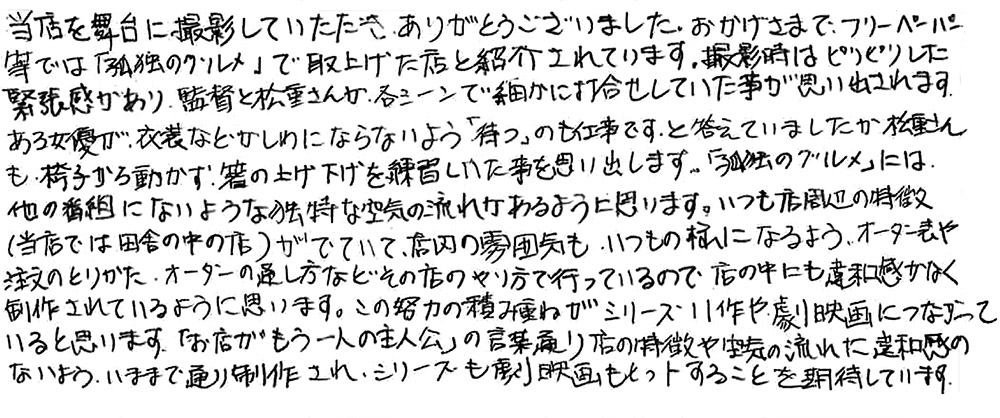 当店を舞台に撮影していただき、ありがとうございました。おかげさまで、フリーペーパー
等では「孤独のグルメ」で取上げた店と紹介されています。撮影時はピリピリした
緊張感があり、監督と松重さんが、各シーンで細かに打合せしていた事が思い出されます。
ある女優が、衣裳などがしわにならないよう「待つ」のも仕事です。と答えていましたが松重さん
も、椅子から動かず、箸の上げ下げを練習していた事を思い出します。「孤独のグルメ」には、
他の番組にないような独特な空気の流れがあるように思います。いつも店周辺の特徴
(当店では田舎の中の店)がでていて、店内の雰囲気も、いつもの様になるよう、オーダー表や
注文のとりかた、オーダーの通し方などその店のやり方で行っているので、店の中にも違和感がなく
制作されているように思います。この努力の積み重ねが シリーズ11作や、劇映画につながって
いると思います。「お店がもう一人の主人公」の言葉通り店の特徴や空気の流れに違和感の
ないよう、いままで通り制作され、シリーズも劇映画もヒットすることを期待しています。